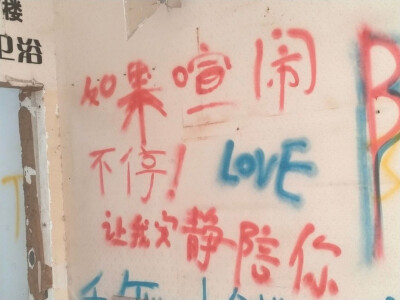 楼
卫浴
如果喧闹
不停！ LOVE
让我安静陪你